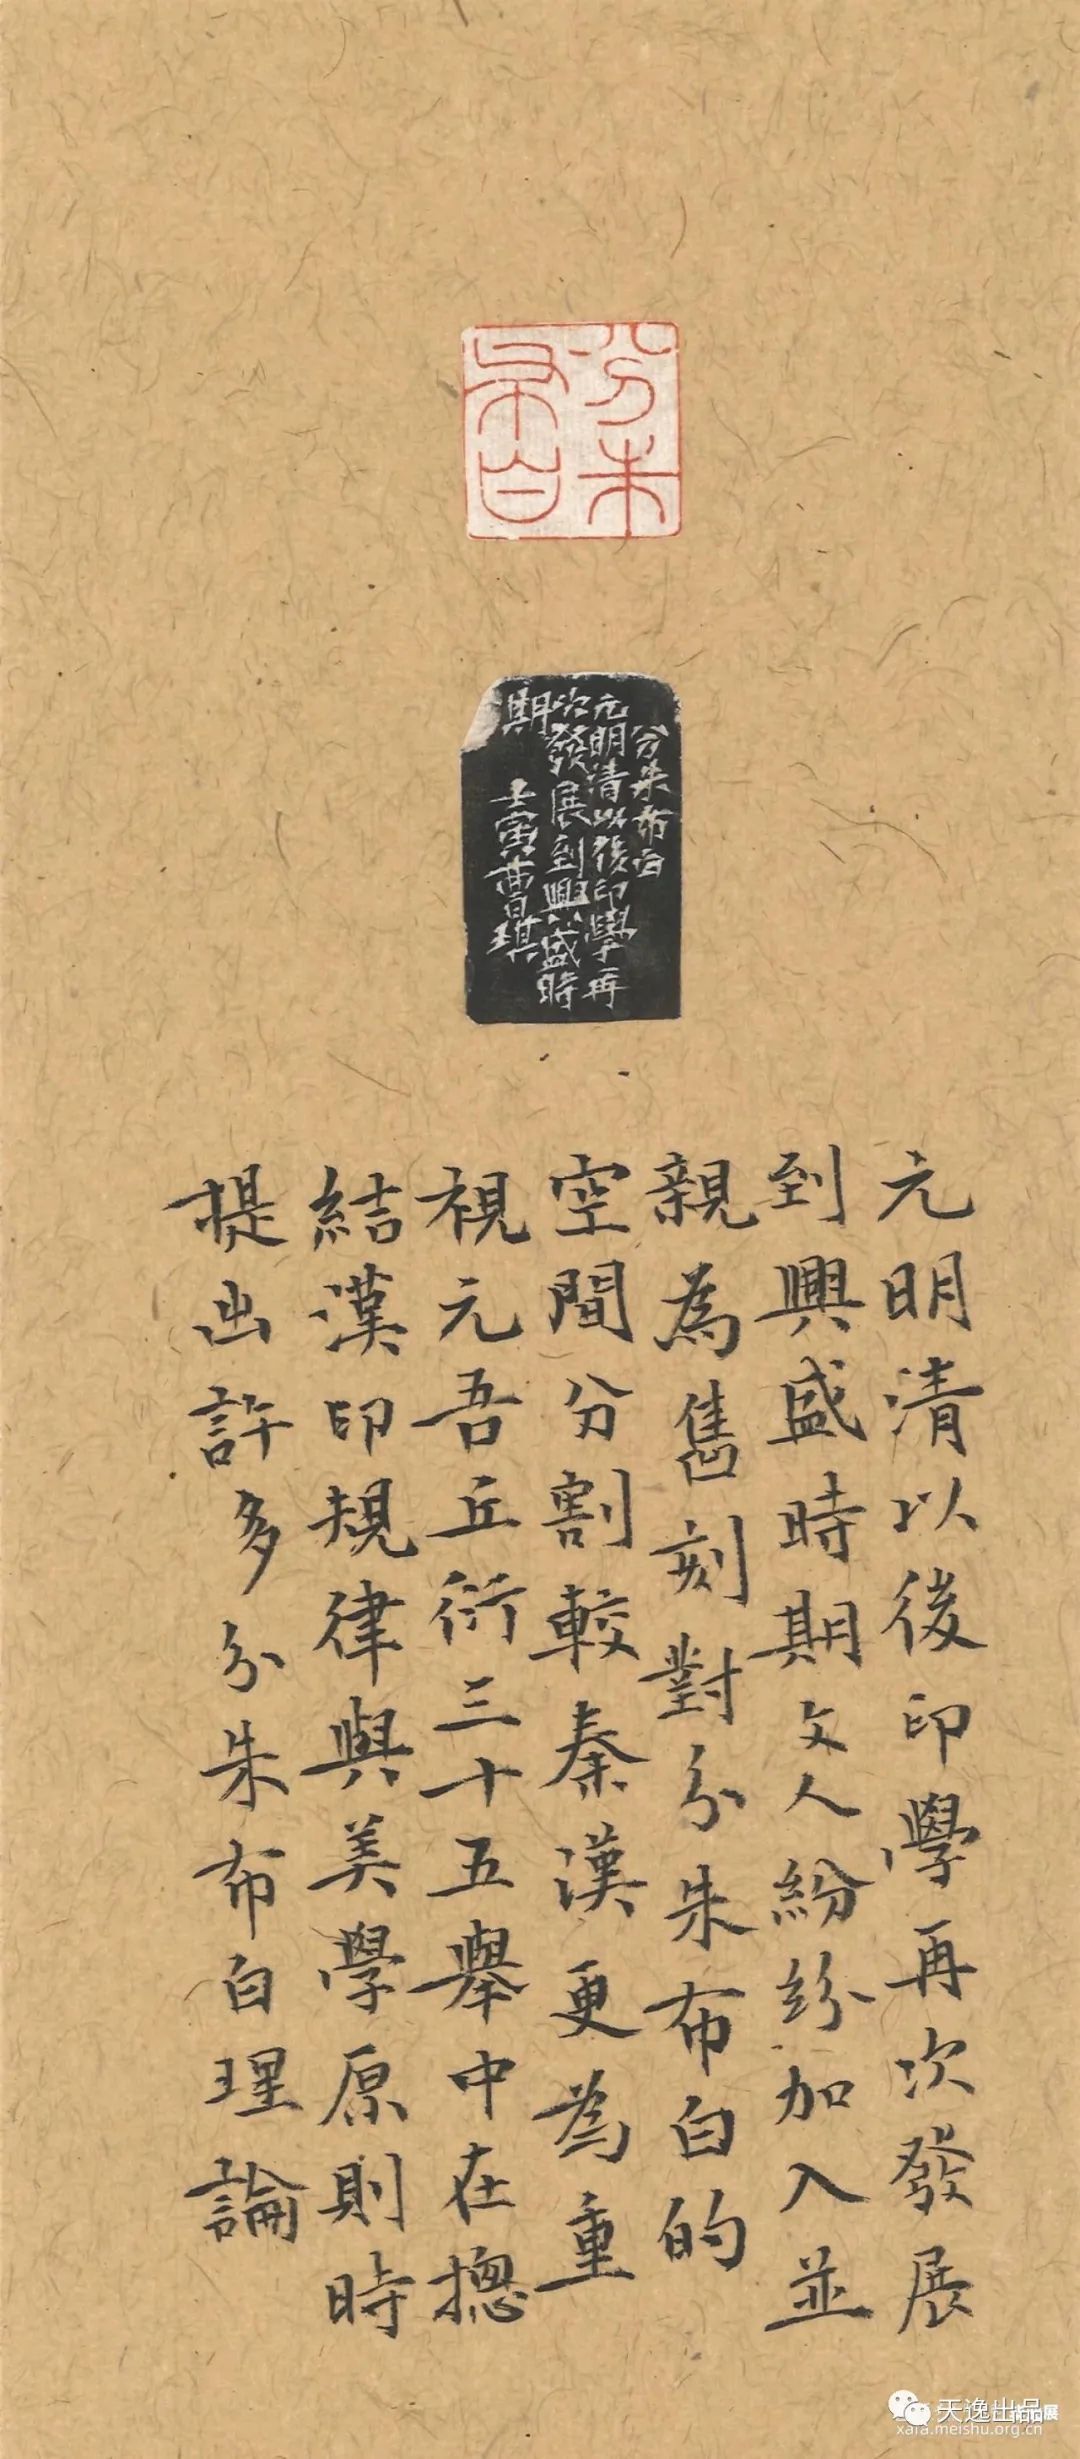 分朱
布白
分朱布白
元明清以後印學再
次發展到興盛時
期
壬寅曹琪
元明清以後印學再次發展
到興盛時期文人紛紛加入並
親為舊刻對分朱布白的
空間分割較秦漢更為重
視元吾丘衍三十五舉中在摠
結漢印規律與美學原則時
提出許多分朱布白理論
天逸出品
xafa.meishu.org.cn